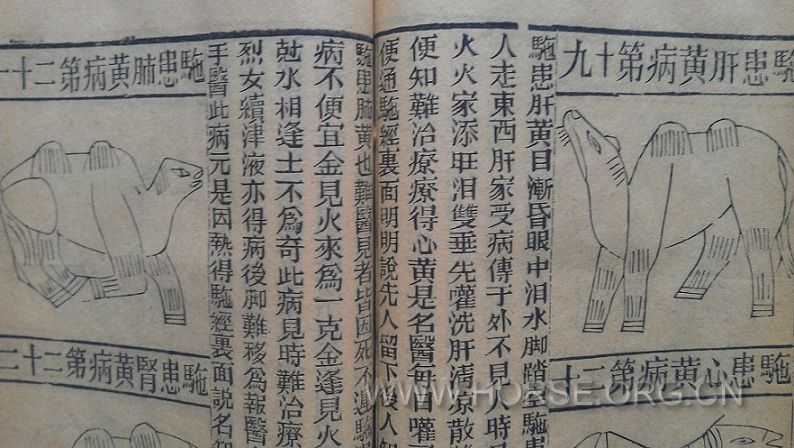 駞患肝黃病第十九
駞患心黃病第二十
駞患肝黃目漸昏眼中泪水脚踏駞患
人走東西肝家受病傳于外不見人時
火火家添旺泪雙垂先灌洗肝清凉散
便知難治療療得心黃是名醫每日嚾
便通駞經裏面明明說先人留下
駞患肺黃也難醫見者皆因死不
病不便宜金見火來爲一克金逢見
尅水相逢土不爲奇此病見時難治療
烈女續津液亦得病後脚難移爲報醫
手醫此病元是因熱得駞經裏面說名
駞患肺黃病第二十一
駞患腎黃病第二十二
WWW.HORSE.ORG.CN